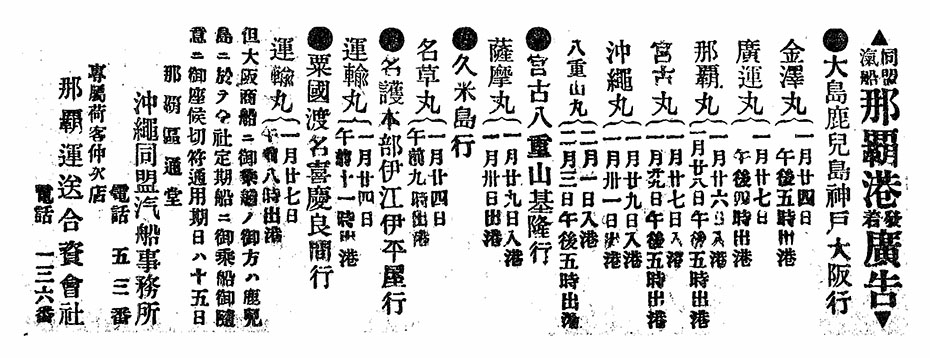 ▲同盟汽船那覇港發着廣告▼
●大島鹿兒島神戸大阪行
金澤丸
一月廿四日
午後五時出港
廣運丸
一月廿七日
午後四時出港
那覇丸
一月廿六日入港
一月廿八日午後五時出港
宮古丸
一月廿七日入港
一月廿九日午後五時出港
沖繩丸
一月廿九日入港
一月卅一日出港
八重山丸
二月一日入港
二月三日午後五時出港
●宮古八重山基隆行
薩摩丸
一月廿九日入港
一月卅日出港
●久米島行
名草丸
一月廿四日
午前九時出港
●名護本部伊江伊平屋行
運輸丸
一月廿四日
午前十一時出港
●粟國渡名喜慶良間行
運輸丸
一月廿七日
午前八時出港
但大阪商船ニ御乘船ノ御方ハ鹿兒
島ニ於テ仝社定期船ニ御乘船御隨
意ニ御座候切符通用期日ハ十五日
那覇區通堂
沖繩同盟汽船事務所
電話 五三番
專屬荷客仲次店
那覇運送合資會社
電話 一三六番